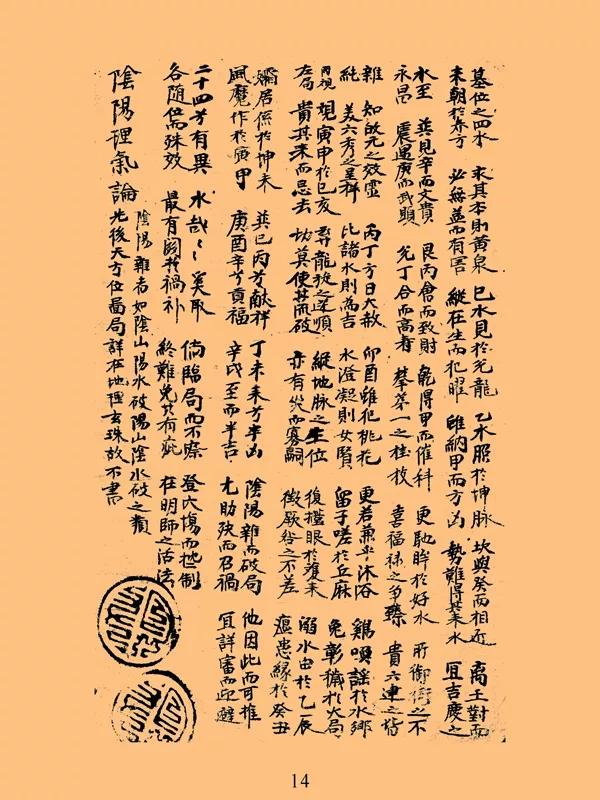 墓位之四水 求其本則黃泉 巳水見於兌龍 乙水照於坤脉 坎與癸而相近 离壬對而
未朝於本方 必無益而有害 縱在生而犯曜 雖納甲而方凶 勢難得其水 宜吉慶之
水至 巽見辛而文貴 艮丙會而致財 乾得甲而催科 更助眸於好水 所御街之不
永昌 震遇庚而武顯 兌丁合而高壽 攀第一之桂枝 喜福祿之多臻 貴六連之皆
雜 知啟元之效靈 丙丁方曰大赦 卯酉雖犯桃花 更若兼乎沐浴 鷄嗅謡於水鄉
純 美六秀之呈祥 比諸水則為吉 水澄凝則女賢 留子嗟於丘麻 免彰穢於大局
內視 視寅甲於巳亥 弄龍之逆順 縱地脉之生位 復檻眼於獲來 溺水由於乙辰
在局 貴其來而忌去 切莫使其而破 亦有災而寡嗣 徵厥咎之不差 瘟患緣於癸丑
孀居係於坤未 並巳丙方献祥 丁未未方半凶 陰陽雜而破局 他因此而可推
風魔作於寅甲 庚酉辛方貢福 辛戌至而半吉 尤助殃而召禍 宜詳審而迎避
二十四方有異 水哉〻奚取 倘臨局而不察 登穴場而扡制
各随儒殊效 最有関於禍補 終難免其有疵 在明師之活法
陰陽理氣論
陰陽雜者如陰山陽水破陽山陰水破之類
先後天方位圖局詳在地理玄珠故不書
14